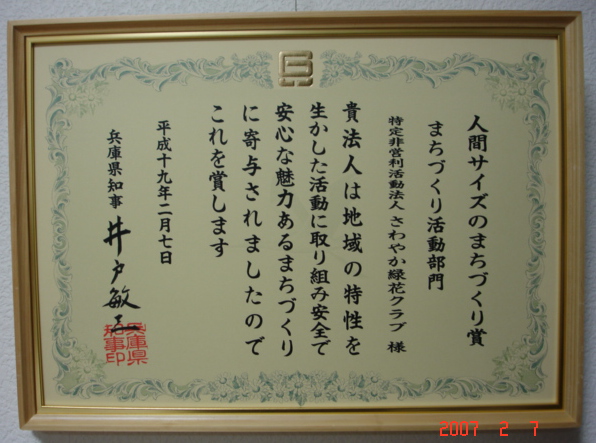 人間サイズのまちづくり賞
まちづくり活動部門
特定非営利活動法人 さわやか緑花クラブ 様
貴法人は地域の特性を
生かした活動に取り組み安全で
安心な魅力あるまちづくり
に寄与されましたので
これを賞します
平成十九年二月七日
兵庫県知事 井戸敏三
兵庫県
知事印
2007 2 7